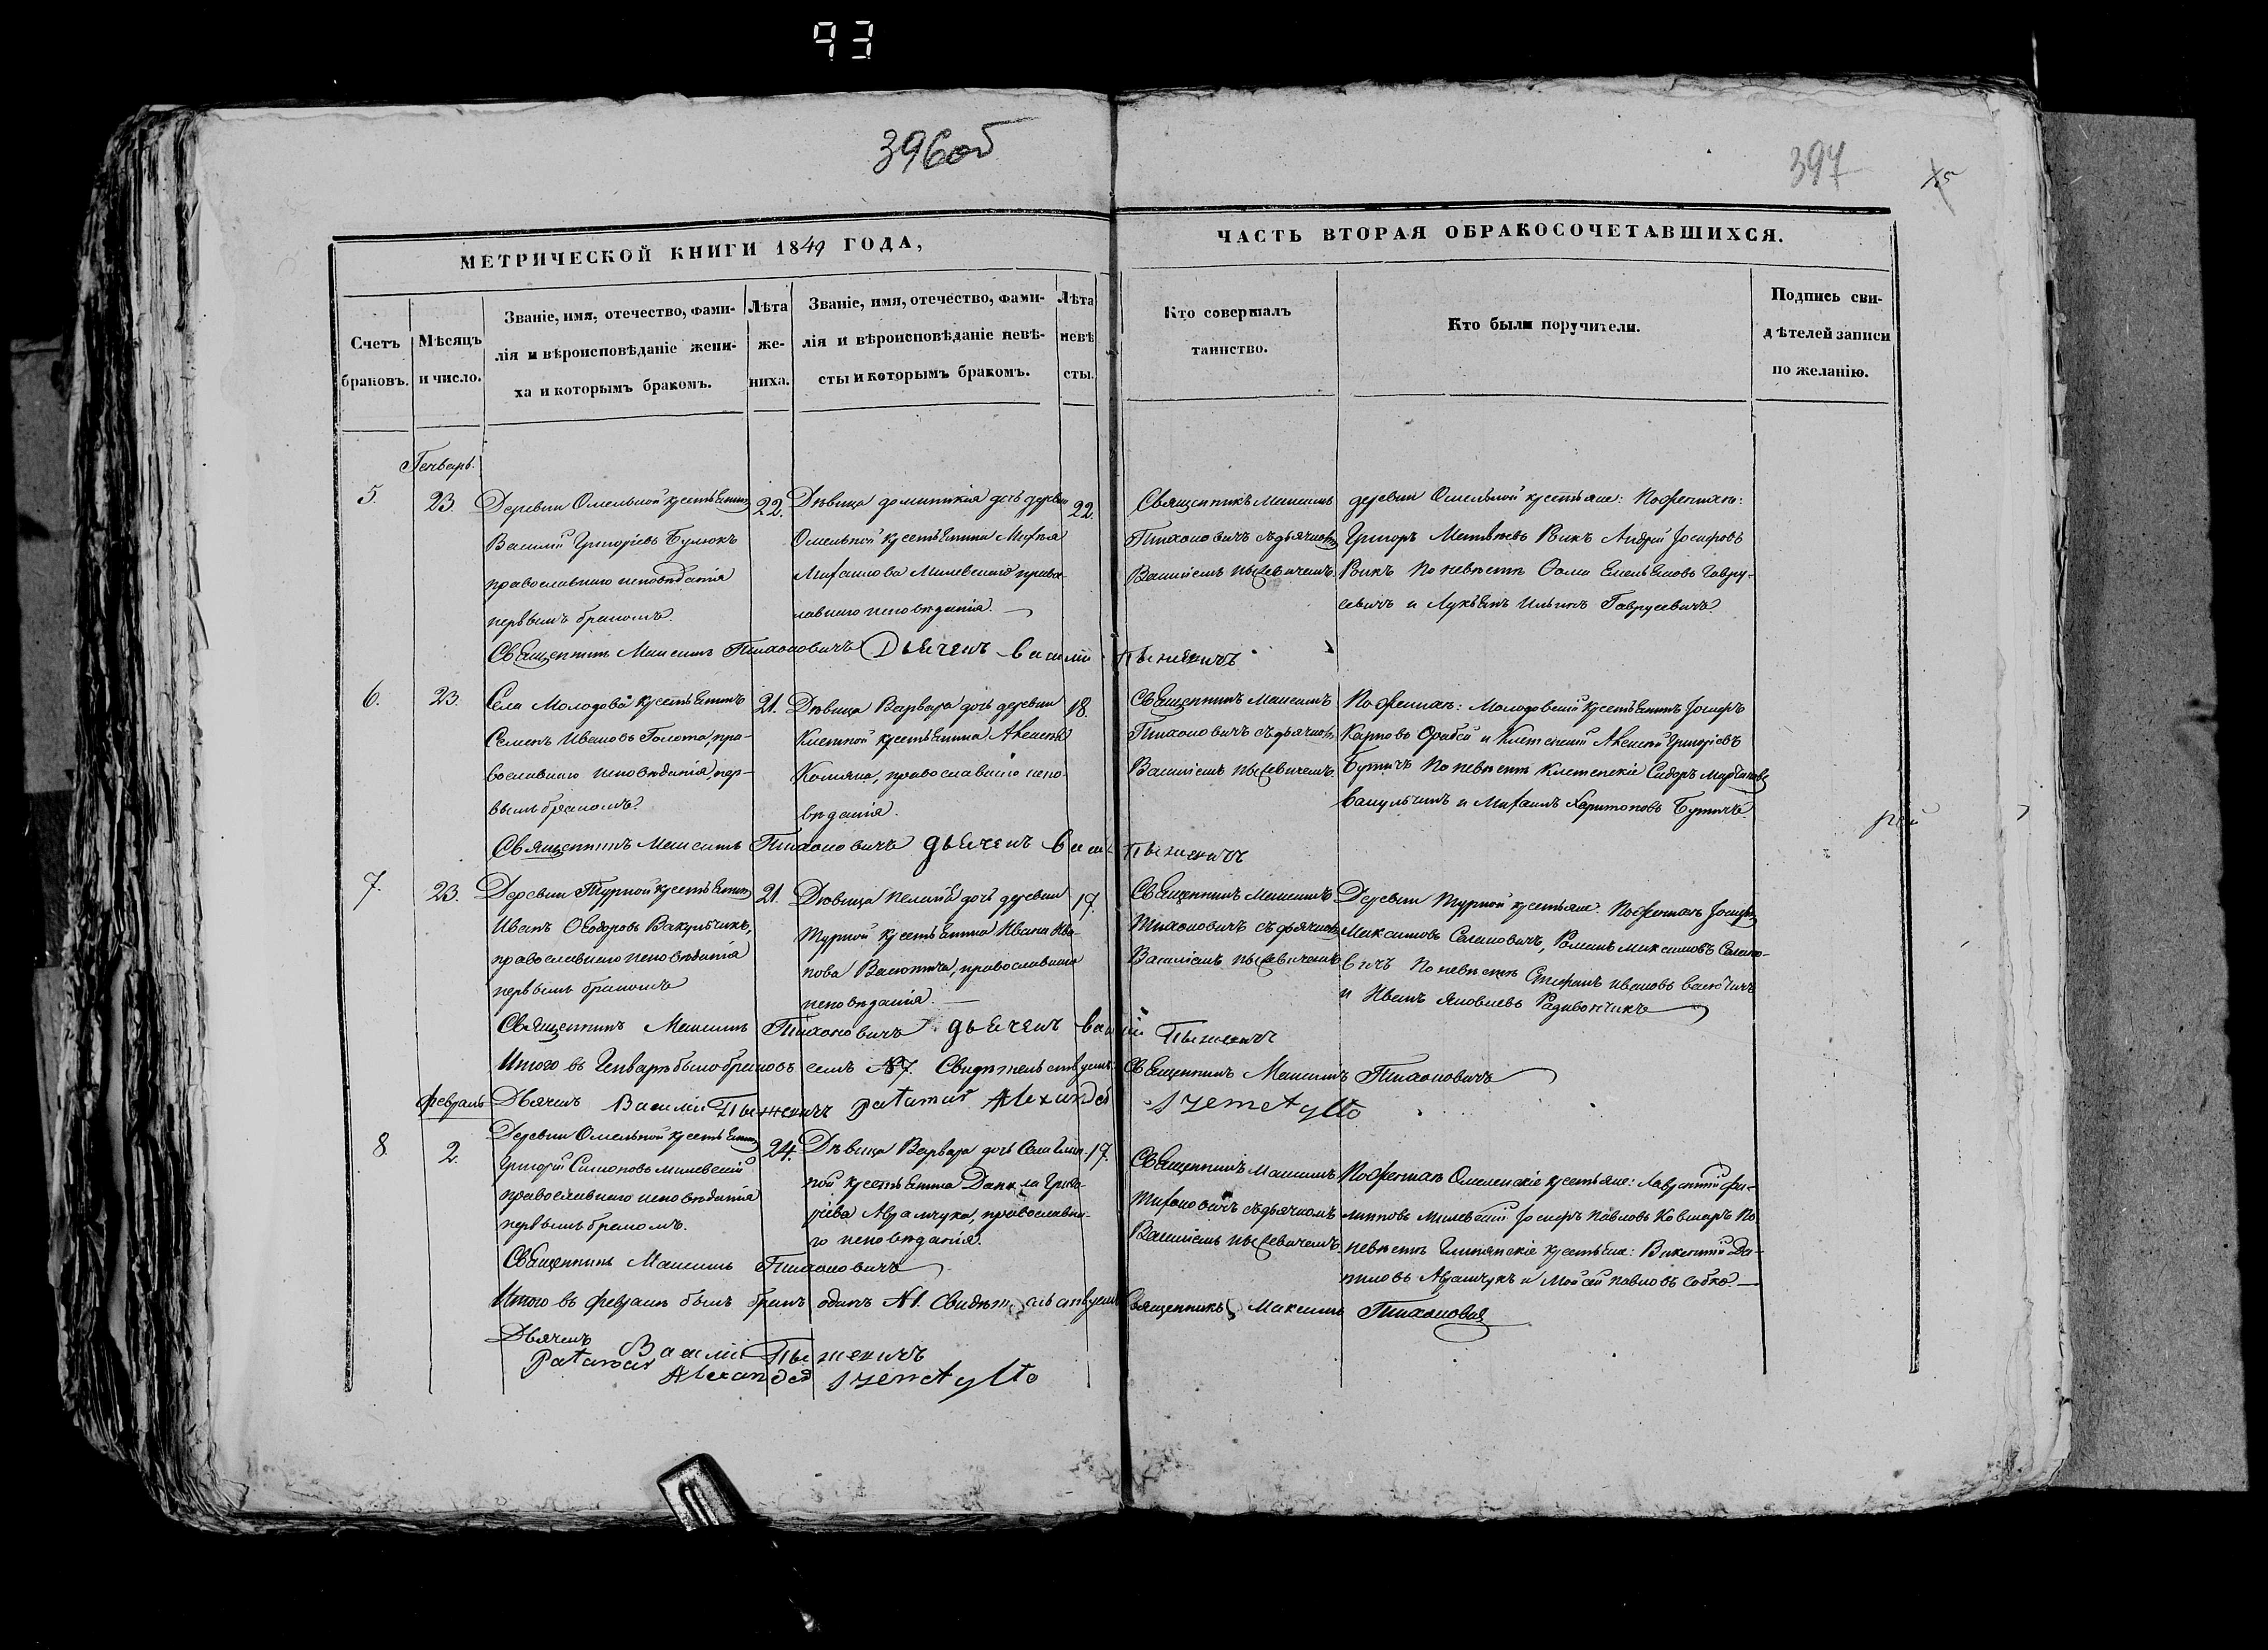 93
396об
397
МЕТРИЧЕСКОЙ КНИГИ 1849 ГОДА,
ЧАСТЬ ВТОРАЯ О БРАКОСОЧЕТАВШИХСЯ.
Счетъ браковъ.
Мѣсяцъ и число.
Званіе, имя, отечество, фами-
лія и вѣроисповѣданіе жени-
ха и которымъ бракомъ.
Лѣта
же-
ниха.
Званіе, имя, отечество, фами-
лія и вѣроисповѣданіе невѣ-
сты и которымъ бракомъ.
Лѣта
невѣ
сты.
Кто совершалъ
таинство.
Кто были поручители.
Подпись сви-
дѣтелей записи
по желанію.
Генварь.
5.
23.
Деревни Омельной крестьянинъ
Василій Григоріевъ Булюкъ
православнаго исповѣданія
первымъ бракомъ.
22.
Дѣвица Доминикія дочь деревни
Омельной крестьянина Михея
Михаилова Милевскаго право-
славнаго исповѣданія.
22.
Священникъ Максимъ
Тихоновичъ съ дьячкомъ
Василіемъ
деревни Омельной крестьяне: По женихѣ:
Григоръ Матвѣевъ Рыкъ Андрей Іосифовъ
Рыкъ По невѣстѣ Фома Емельяновъ Гавру-
севичъ и Лукьянъ Ильинъ Гаврусевичъ.
Священникъ Максимъ Тихоновичъ Дьячекъ Василій Пыжевичъ
6.
23.
Села Молодова крестьянинъ
Семенъ Ивановъ Голота, пра-
вославнаго исповѣданія, пер-
вымъ бракомъ.
21.
Дѣвица Варвара дочь деревни
Клетной крестьянина Алексѣя
Коляна, православнаго испо-
вѣданія.
18.
Священникъ Максимъ
Тихоновичъ съ дьячкомъ
Василіемъ
По женихѣ: Молодовскій крестьянинъ Іосифъ
Карповъ и Клетенскій Алексѣй Григоріевъ
Бутичъ По невѣстѣ Клетенскіе Сидоръ Мартиновъ
Вакульчикъ и Михаилъ Харитоновъ Бутичъ.
Священникъ Максимъ Тихоновичъ дьячекъ Васи- Пыжевичъ
7.
23.
Деревни Турной крестьянинъ
Иванъ Ѳеодоровъ Вакульчикъ,
православнаго исповѣданія
первымъ бракомъ
21.
Дѣвица Пелагія дочь деревни
Турной крестьянина Ивана Ива-
нова Васютича, православнаго
исповѣданія.
17.
Священникъ Максимъ
Тихоновичъ съ дьячкомъ
Василіемъ
Деревни Турной крестьяне: По женихѣ Іосифъ
Максимовъ Селиновичъ, Романъ Максимовъ Селино-
вичъ По невѣстѣ Стефанъ Ивановъ Васютичъ
и Иванъ Яковлевъ Радивончикъ
Священникъ Максимъ Тихоновичъ дьячекъ Василій Пыжевичъ
Итого въ Генварѣ было браковъ семь №7. Свидѣтельствуемъ: Священникъ Максимъ Тихоновичъ
Дьячекъ Василій Пыжевичъ Patamar Alexander Szemetyłło
Февраль
8
2.
Деревни Омельной крестьянинъ
Григорій Симоновъ Милевскій
православнаго исповѣданія
первымъ бракомъ.
24.
Дѣвица Варвара дочь Села Глин-
ной крестьянина Данила Григо-
ріева Абрамчука, православна-
го исповѣданія.
17.
Священникъ Максимъ
Тихоновичъ съ дьячкомъ
Василіемъ
По женихѣ Омеленскіе крестьяне: Лаврентій Фи-
липповъ Милевскій Іосифъ Павловъ Ковшаръ По
невѣстѣ Глинянскіе крестьяне: Викентій Да-
ниловъ Абрамчукъ и Моисей Павловъ Собко.
Священникъ Максимъ Тихоновичъ
Итого въ Февралѣ былъ бракъ одинъ №1. Свидѣтельствуемъ Священникъ Максимъ Тихоновичъ
Дьячекъ Василій Пыжевичъ
Patamar Alexander Szemetyłło